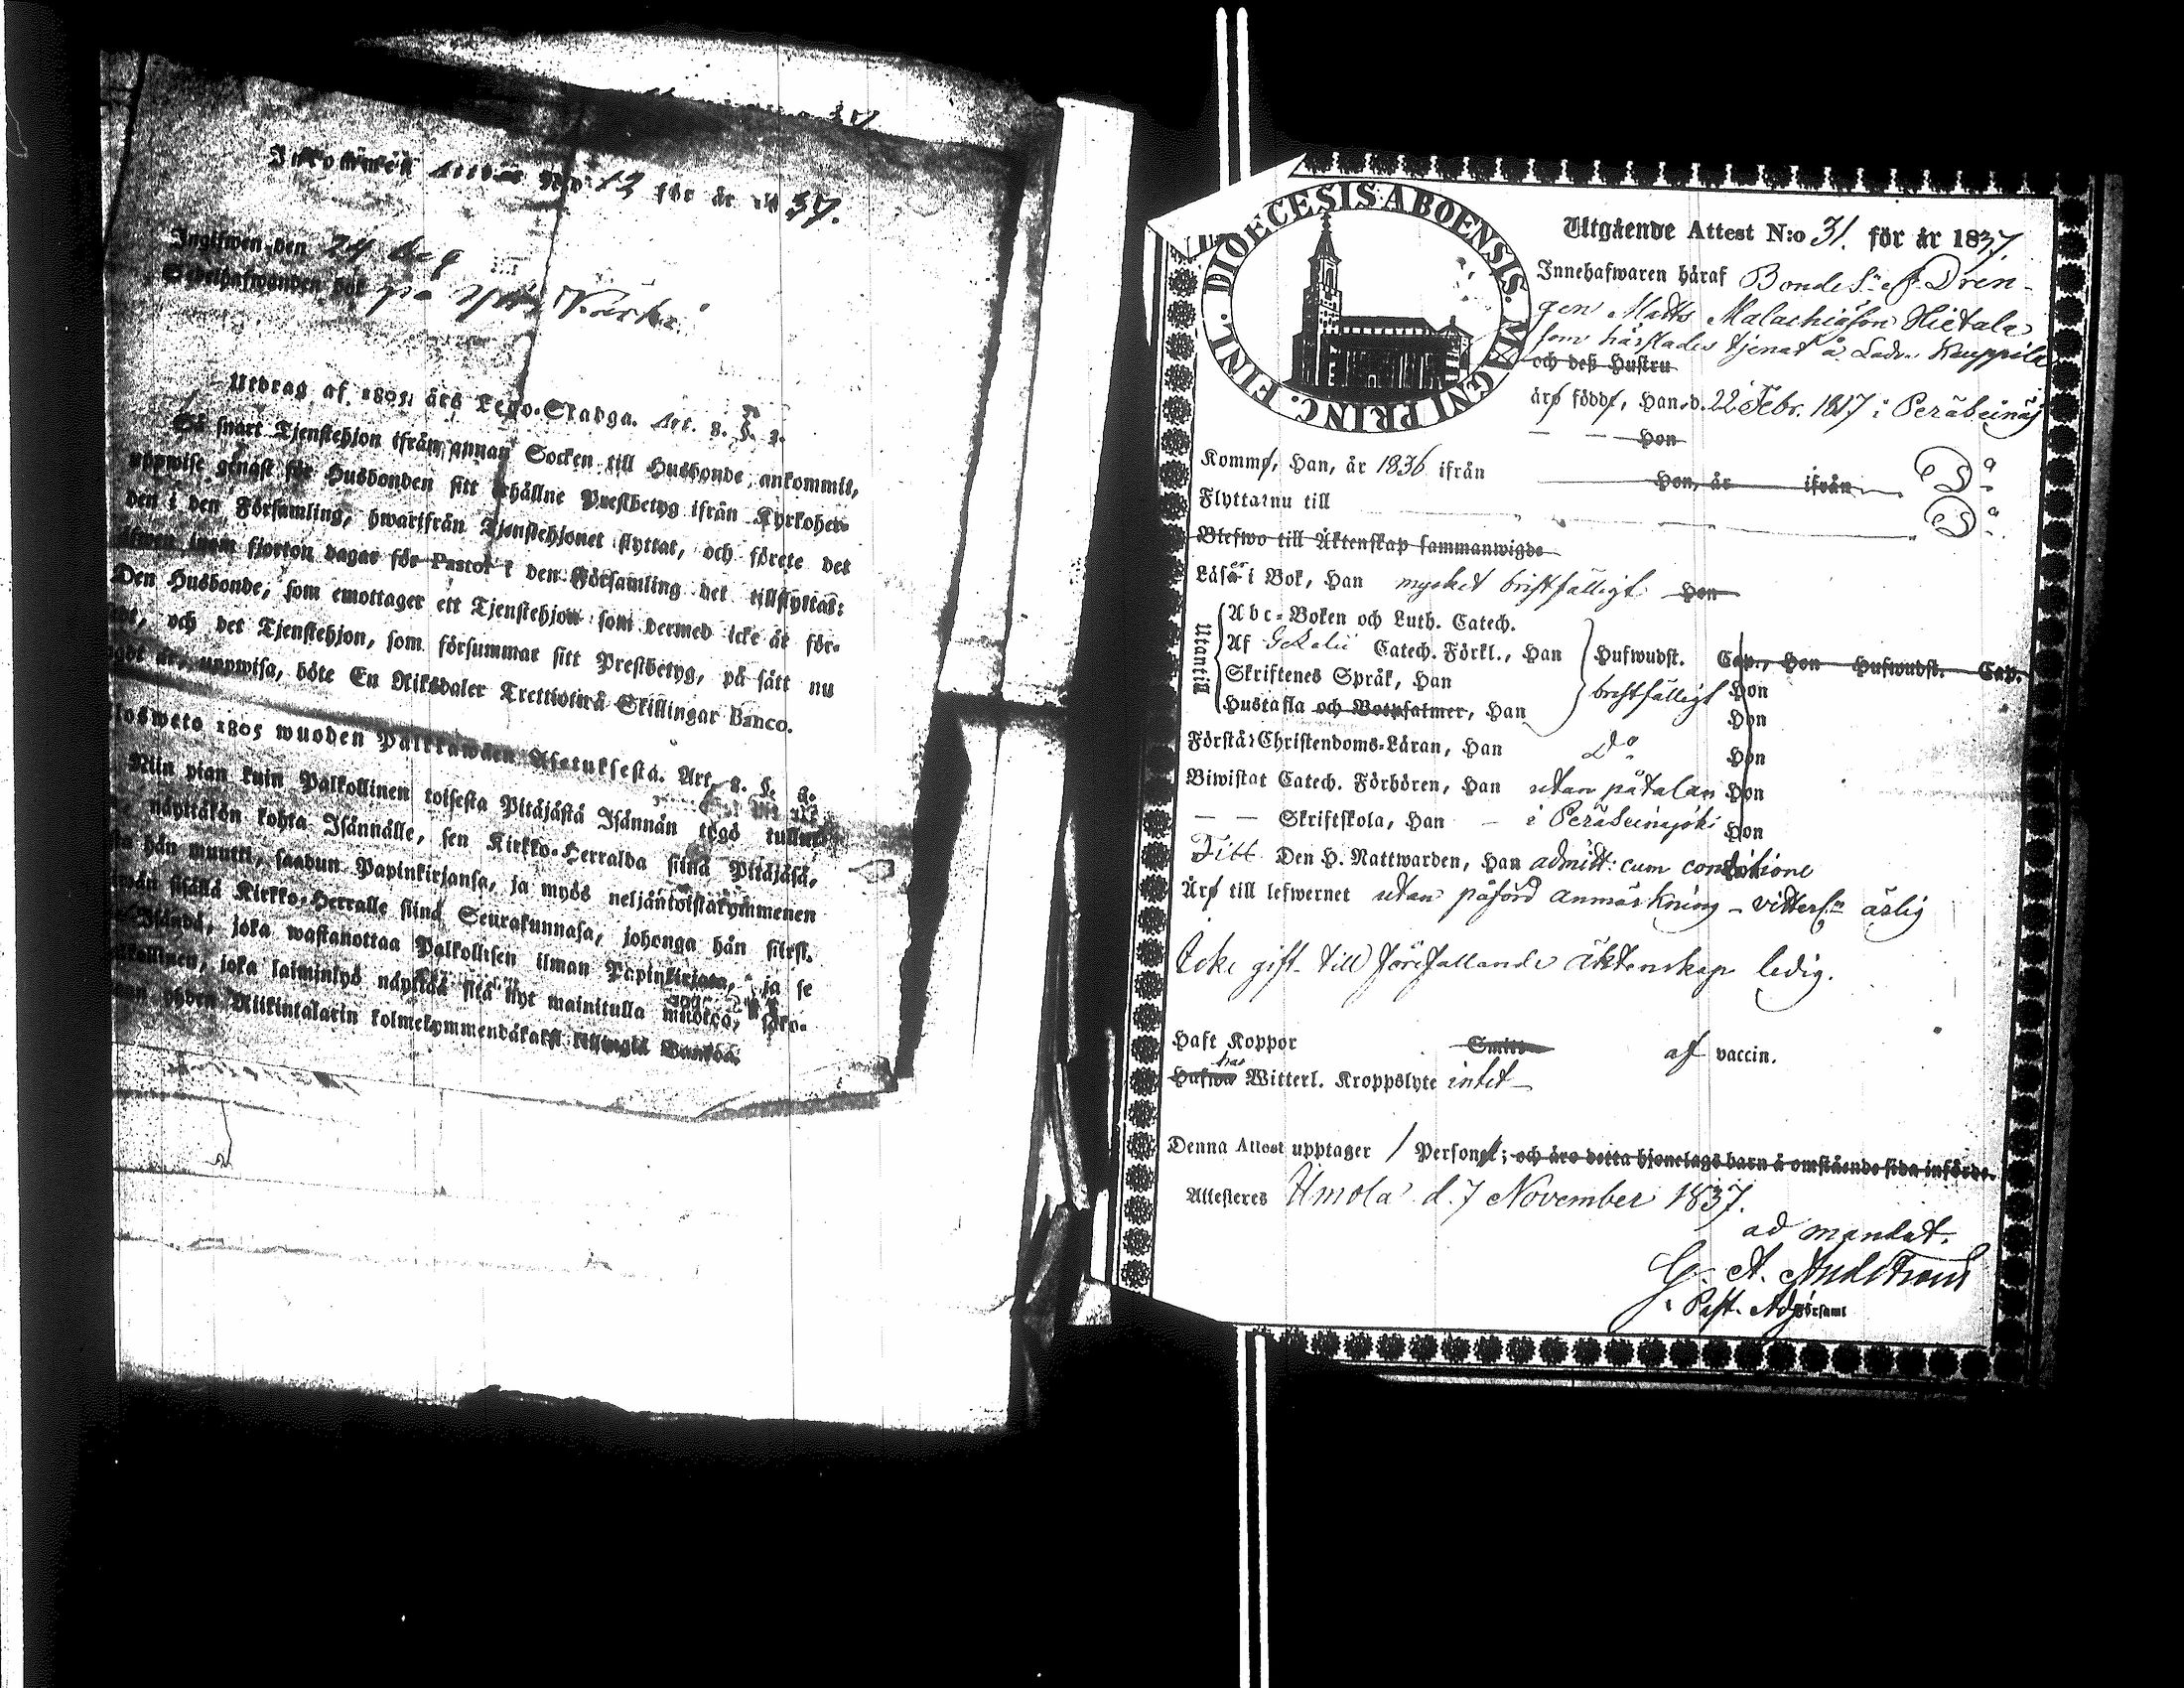 Inkommen Attest N:o 13 för år 1837.
Ingifwen den 24
Sedelhafwanden bör på
Utdrag af 1805 års Lego-Stadga. Art. 8. §. 2.
Så snart Tjenstehjon ifrån annan Socken till Husbonde ankommit,
uppwise genast för Husbonden sitt erhållne Prestbetyg ifrån Kyrkoher-
den i den Församling, hwarifrån Tjenstehjonet flyttat, och förete det
äfwen inom fjorton dagar för Pastor i den Församling det tillflyttat:
Den Husbonde, som emottager ett Tjenstehjon som dermed icke är för-
och det Tjenstehjon, som försummar sitt Prestbetyg, på sätt nu
uppwisa, böte En Riksdaler Trettiotwå Skillingar Banco.
1805 wuoden Palkkawäen Asetuksesta. Art. 8. §. 2.
Niin pian kuin Palkollinen toisesta Pitäjästä Isännän tygö tullut
näyttäkön kohta Isännälle, sen Kirkko-Herralda siinä Pitäjäsä,
hän muutti, saadun Papinkirjansa, ja myös neljäntoistakymmenen
sisällä Kirkko-Herralle siinä Seurakunnasa, johonga hän siirsi.
Isändä, joka wastanottaa Palkollisen ilman Papinkirjata, ja se
joka laiminlyö näyttää sitä nyt mainitulla muotoa, sako-
yhden Riikintalarin kolmekymmendäkaksi killingiä Bankoa.
DIOECESIS ABOENSIS. MAGNI PRINC. FINL.
Utgående Attest N:o 31. för år 1837.
Innehafwaren häraf Bonde S. Dren-
gen Matts Malachiasson Hietala
som härstädes tjenat å Kauppila
och deß Hustru
äro född, Han d. 22 Febr. 1817 i Peräseinäj
— — Hon
Komme, Han, år 1836 ifrån Hon, år ifrån D:o
Flyttar nu till D:o
Blefwo till Äktenskap sammanwigde
Läser i Bok, Han mycket bristfälligt Hon
Utantill
Abc-Boken och Luth. Catech.
Af Catech. Förkl., Han Hufwudst. Cap., Hon Hufwudst. Cap.
Skriftenes Språk, Han bristfälligt Hon
Hustafla och Botpsalmer, Han Hon
Förstår Christendoms-Läran, Han D:o Hon
Biwistat Catech. Förhören, Han utan påtalan Hon
— — Skriftskola, Han — i Peräseinäjoki Hon
Till Den H. Nattwarden, Han admitt. cum conditione
Äro till lefwernet utan påförd anmärkning — ärlig
Icke gift till förefallande äktenskap ledig.
Haft Koppor af vaccin.
Hafwa har Witterl. Kroppslyte intet
Denna Attest upptager 1 Person; och äro detta hjonelags barn å omstående sida införde.
Attesteres Ilmola d. 7 November 1837.
ad mandat.
G. A.
Past. Adj.